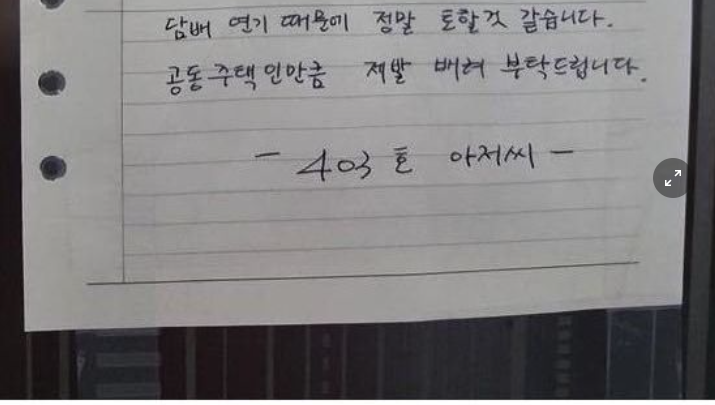 담배 연기 때문에 정말 토할것 같습니다.
공동주택인만큼 제발 배려 부탁드립니다.
- 403호 아저씨 -